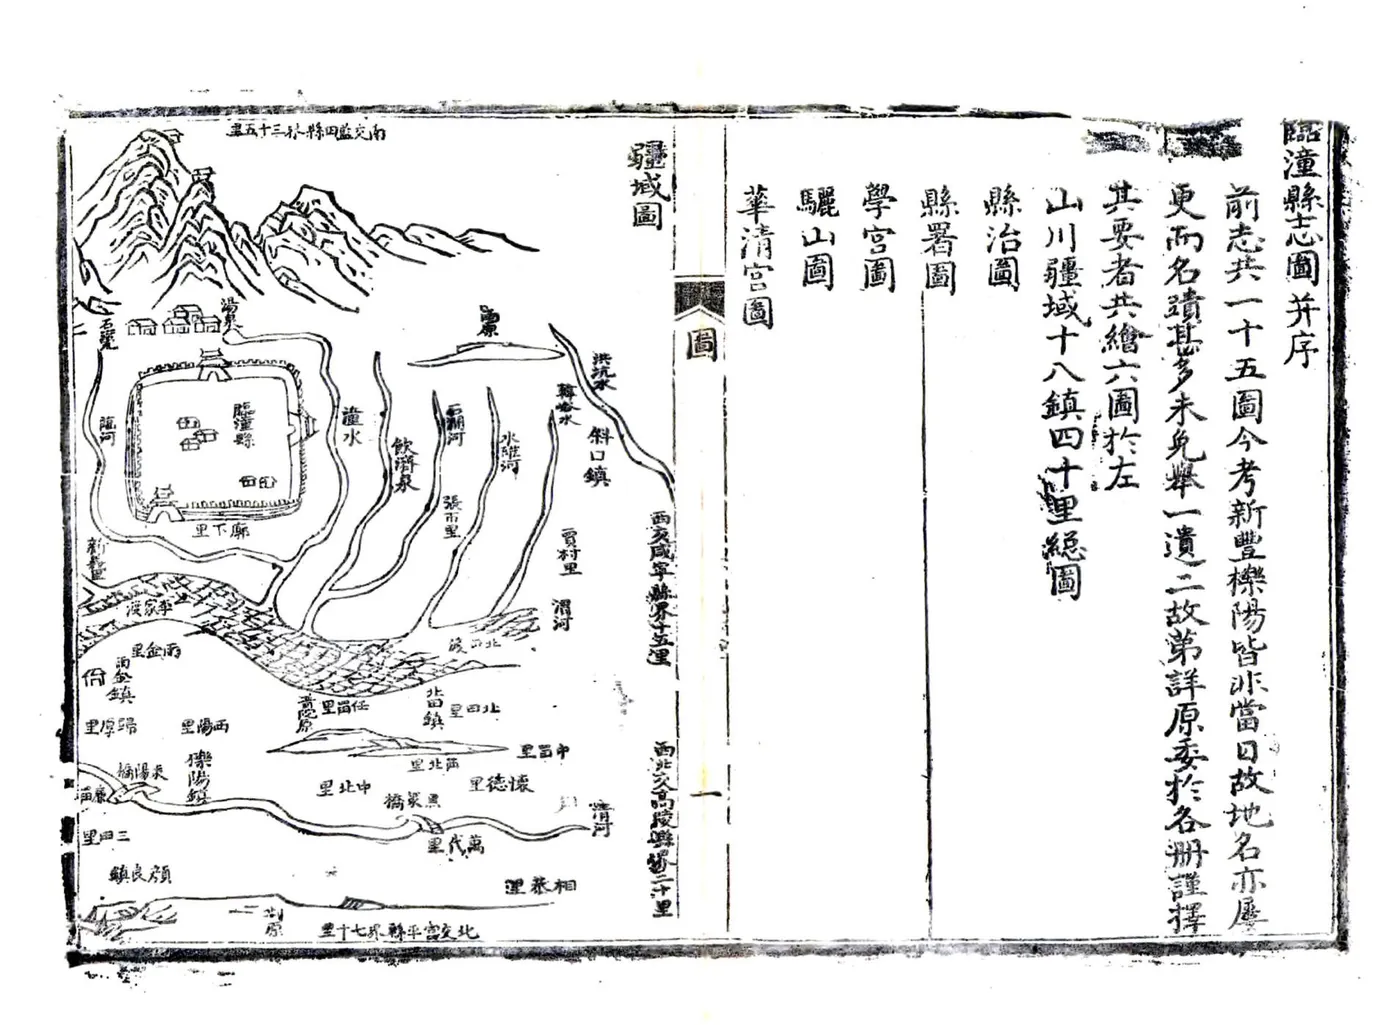 臨潼縣志圖并序
前志共一十五圖今考新豐櫟陽皆非當日故地名亦屢
更而名蹟甚多未免舉一遺二故第詳原委於各册謹擇
其要者共繪六圖於左
山川疆域十八鎮四十里總圖
縣治圖
縣署圖
學宮圖
驪山圖
華清宮圖
圖
一
疆域圖
南交藍田縣界三十五里
西交咸寧縣界十五里
西北交高陵縣界二十里
北交富平縣界七十里
湯泉
石甕
臨潼縣
臨河
潼水
飲濟泉
石甕河
水磨河
韓峪水
洪坑水
斜口鎮
張市里
賈村里
廓下里
新豐里
李家渡
渭河
北田渡
雨金里
雨金鎮
歸厚里
西陽里
普陀原
任留里
北田鎮
北田里
中留里
櫟陽鎮
中北里
懷德里
清河
萬代里
三田里
顏良鎮
相恭里
荆原